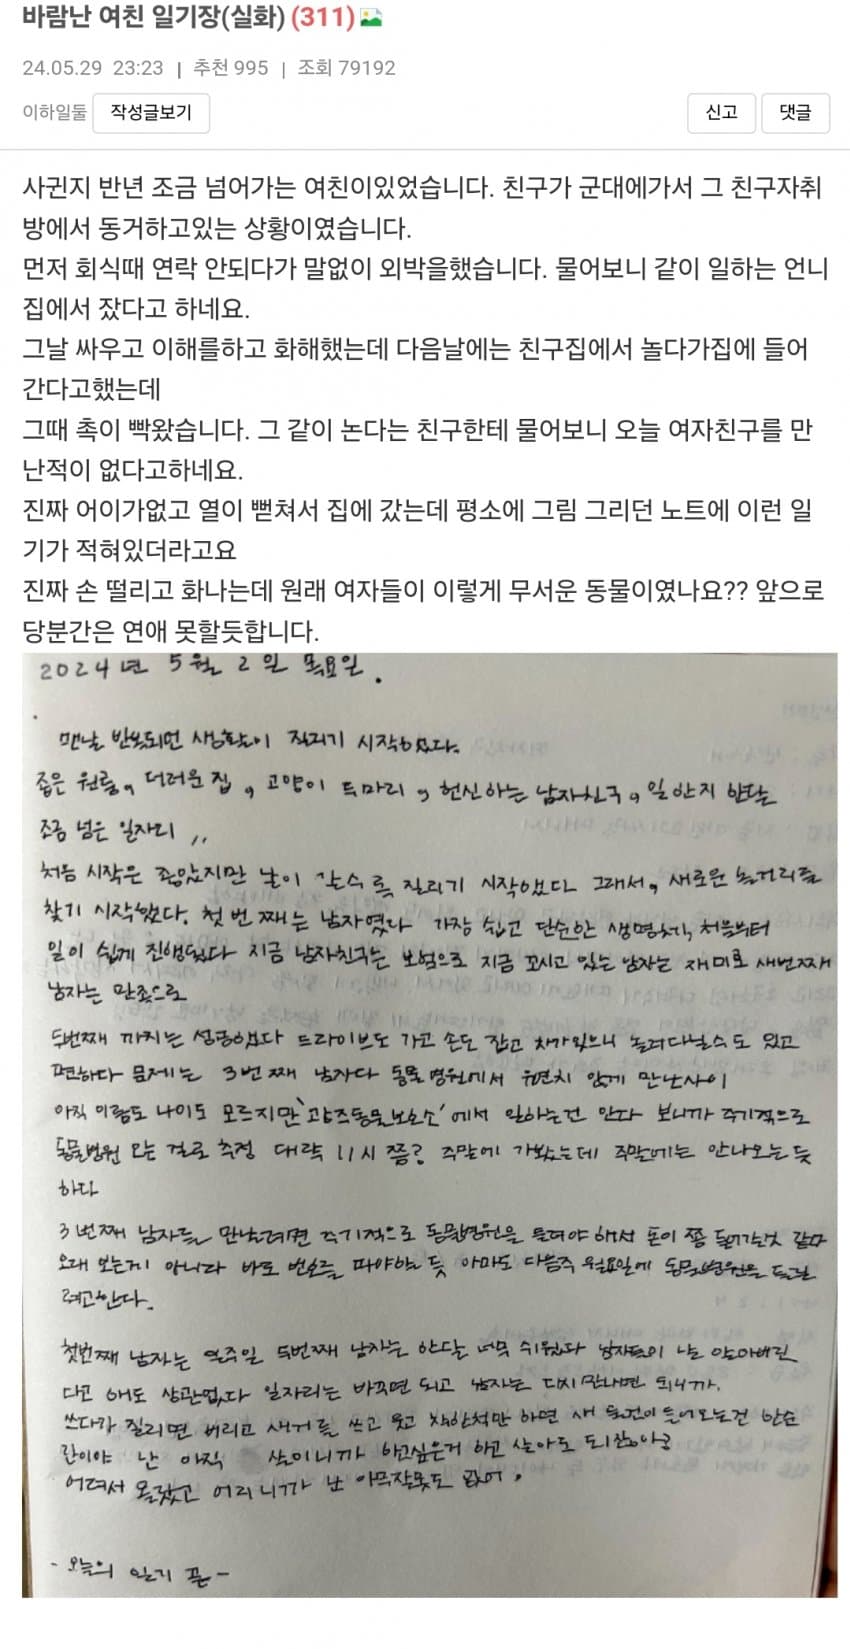 바람난 여친 일기장(실화) (311)
24.05.29 23:23 | 추천 995 | 조회 79192
이하일둘 작성글보기 신고 댓글
사귄지 반년 조금 넘어가는 여친이있었습니다. 친구가 군대에가서 그 친구자취
방에서 동거하고있는 상황이였습니다.
먼저 회식때 연락 안되다가 말없이 외박을했습니다. 물어보니 같이 일하는 언니
집에서 잤다고 하네요.
그날 싸우고 이해를하고 화해했는데 다음날에는 친구집에서 놀다가집에 들어
간다고했는데
그때 촉이 빡왔습니다. 그 같이 논다는 친구한테 물어보니 오늘 여자친구를 만
난적이 없다고하네요.
진짜 어이가없고 열이 뻗쳐서 집에 갔는데 평소에 그림 그리던 노트에 이런 일
기가 적혀있더라고요
진짜 손 떨리고 화나는데 원래 여자들이 이렇게 무서운 동물이였나요?? 앞으로
당분간은 연애 못할듯합니다.
2024년 5월 2일 목요일.
맨날 반복되면 생활이 질리기 시작하였다.
좁은 원룸, 더러운 집, 고양이 두마리, 헌신하는 남자친구, 일한지 한달
조금 넘은 일자리,,
처음 시작은 좋았지만 날이 갈수록 질리기 시작했다 그래서, 새로운 놀거리를
찾기 시작했다. 첫 번째는 남자였다 가장 쉽고 단순한 생명체, 처음부터
일이 쉽게 진행됐다 지금 남자친구는 보험으로 지금 꼬시고 있는 남자는 재미로 세번째
남자는 만족으로
두번째 까지는 성공했다 드라이브도 가고 손도 잡고 차가있으니 놀러다닐수도 있고
편하다 문제는 3번째 남자다 동물병원에서 우연치 않게 만난사이
아직 이름도 나이도 모르지만 '광주동물보호소'에서 일하는건 안다 보니까 주기적으로
동물병원 오는 걸로 추정 대략 11시 쯤? 주말에 가봤는데 주말에는 안나오는 듯
하다
3번째 남자를 만날려면 주기적으로 동물병원을 들려야 해서 돈이 쫌 들거같것 같다
오래 보는게 아니라 바로 번호를 따야할 듯 아마도 다음주 월요일에 동물병원을 들릴
려고한다.
첫번째 남자는 일주일 두번째 남자는 한달 너무 쉬웠다 남자들이 나를 알아버린
다고 해도 상관없다 일자리는 바꾸면 되고 남자는 다시 만나면 되니까.
쓰다가 질리면 버리고 새거를 쓰고 웃고 착한척만 하면 새 물건이 들어오는건 한순
간이야 난 아직 살이니까 하고싶은거 하고 살아도 되잖아?
어려서 몰랐고 어리니까 난 아무잘못도 없어.
-오늘의 일기 끝-